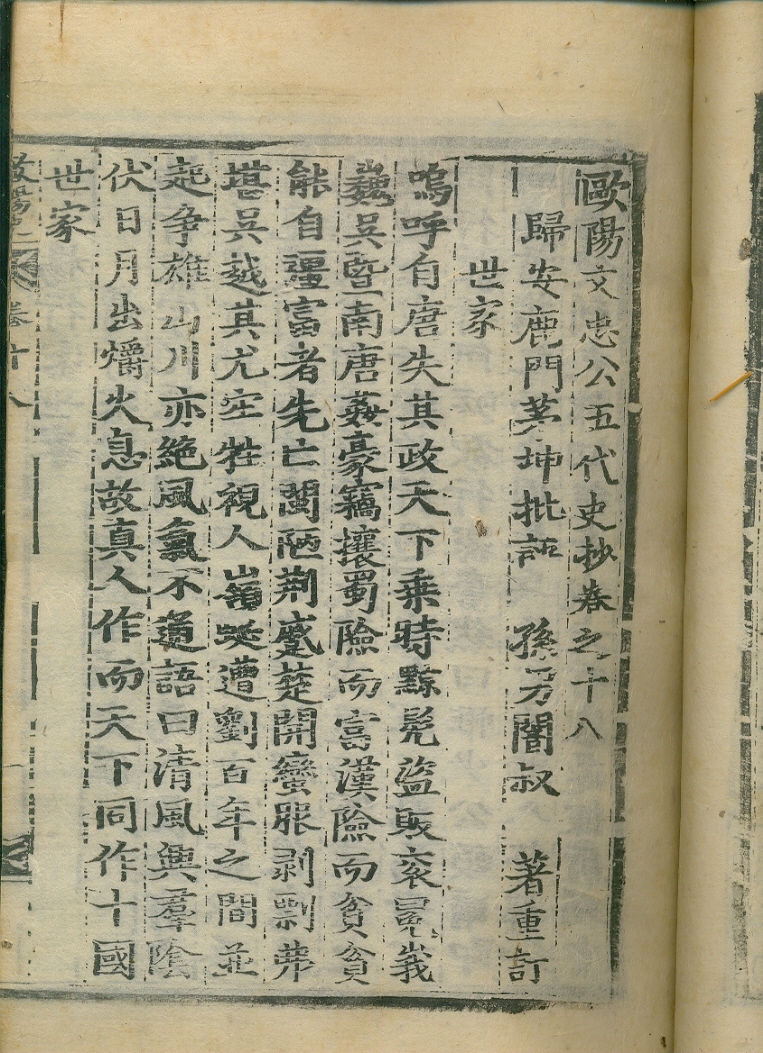 歐陽文忠公五代史抄卷之十八
歸安鹿門茅坤批評 孫男闇叔 著重訂
世家
嗚呼自唐失其政天下乘時黥髡盜販袞冕峩
巍吳曁南唐姦豪竊攘蜀險而富漢險而貧貧
能自彊富者先亡閩陋荆蹙楚開蠻服剥剽弗
堪吳越其尤牢牲視人嶺蜑遭劉百年之間並
起爭雄山川亦絶風氣不通語曰清風興羣陰
伏日月出爝火息故真人作而天下同作十國
世家
卷十八